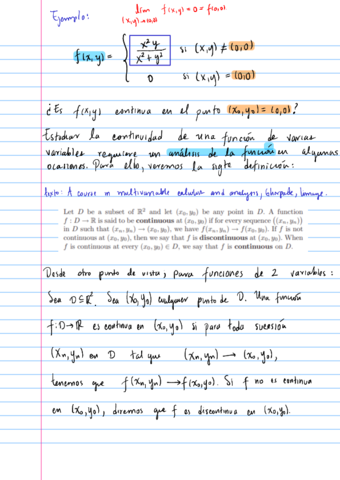 Ejemplo:
lím f(x,y) = 0 = f(0,0)
(x,y)→(0,0)
f(x,y) = { x²y / x²+y² si (x,y) ≠ (0,0)
0 si (x,y) = (0,0)
¿Es f(x,y) continua en el punto (x₀,y₀) = (0,0)?
Estudiar la continuidad de una función de varias
variables requiere un análisis de la función en algunas
ocasiones. Para ello, veremos la sgte definición:
texto: A course in multivariable calculus and analysis, Ghorpade, Limaye.
Let D be a subset of ℝ² and let (x₀, y₀) be any point in D. A function
f : D → ℝ is said to be continuous at (x₀, y₀) if for every sequence ((xₙ, yₙ))
in D such that (xₙ, yₙ) → (x₀, y₀), we have f(xₙ, yₙ) → f(x₀, y₀). If f is not
continuous at (x₀, y₀), then we say that f is discontinuous at (x₀, y₀). When
f is continuous at every (x₀, y₀) ∈ D, we say that f is continuous on D.
Desde otro punto de vista, para funciones de 2 variables:
Sea D ⊆ ℝ². Sea (x₀,y₀) cualquier punto de D. Una función
f: D → ℝ es continua en (x₀,y₀) si para toda sucesión
(xₙ,yₙ) en D tal que (xₙ,yₙ) → (x₀,y₀),
tenemos que f(xₙ,yₙ) → f(x₀,y₀). Si f no es continua
en (x₀,y₀), diremos que f es discontinua en (x₀,y₀).